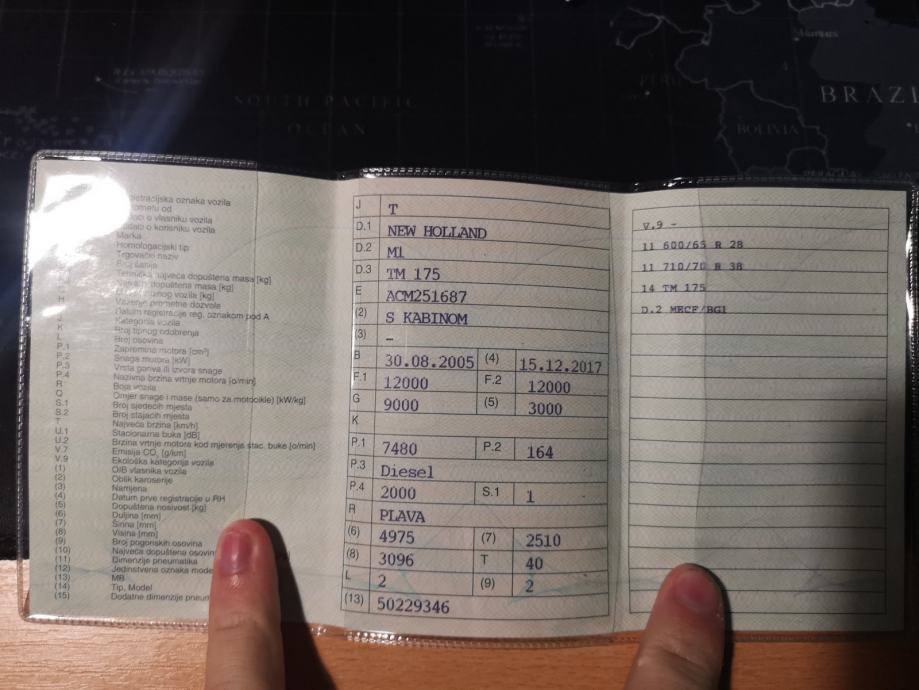 SOUTH PACIFIC
OCEAN
PERU
BRAZI
BOLIVIA
oznaka vozila
od
o vlasniku vozila
o korisniku vozila
Marka
Homologacijski tip
Trgovački naziv
Broj šasija
Tehnička najveća dopuštena masa [kg]
najveća dopuštena masa [kg]
vozila [kg]
Važenje prometne dozvole
Datum registracije reg. oznakom pod A
Kategorija vozila
K Broj tipnog odobrenja
L Broj osovina
P.1 Zapremina motora [cm³]
P.2 Snaga motora [kW]
P.3 Vrsta goriva ili izvora snage
P.4 Nazivna brzina vrtnje motora [o/min]
R Boja vozila
Q Omjer snage i mase (samo za motocikle) [kW/kg]
S.1 Broj sjedećih mjesta
S.2 Broj stajaćih mjesta
T Najveća brzina [km/h]
U.1 Stacionarna buka [dB]
U.2 Brzina vrtnje motora kod mjerenja stac. buke [o/min]
V.7 Emisija CO₂ [g/km]
V.9 Ekološka kategorija vozila
(1) OIB vlasnika vozila
(2) Oblik karoserije
(3) Namjena
(4) Datum prve registracije u RH
(5) Dopuštena nosivost [kg]
(6) Duljina [mm]
(7) Širina [mm]
(8) Visina [mm]
(9) Broj pogonskih osovina
(10) Najveća dopuštena
(11) Dimenzije pneumatika
(12) Jedinstvena oznaka
(13) MB
(14) Tip, Model
(15) Dodatne dimenzije
J T
D.1 NEW HOLLAND
D.2 M1
D.3 TM 175
E ACM251687
(2) S KABINOM
(3) -
B 30.08.2005 (4) 15.12.2017
F.1 12000 F.2 12000
G 9000 (5) 3000
K
P.1 7480 P.2 164
P.3 Diesel
P.4 2000 S.1 1
R PLAVA
(6) 4975 (7) 2510
(8) 3096 T 40
L 2 (9) 2
(13) 50229346
V.9 -
11 600/65 R 28
11 710/70 R 38
14 TM 175
D.2 MECF/BG1